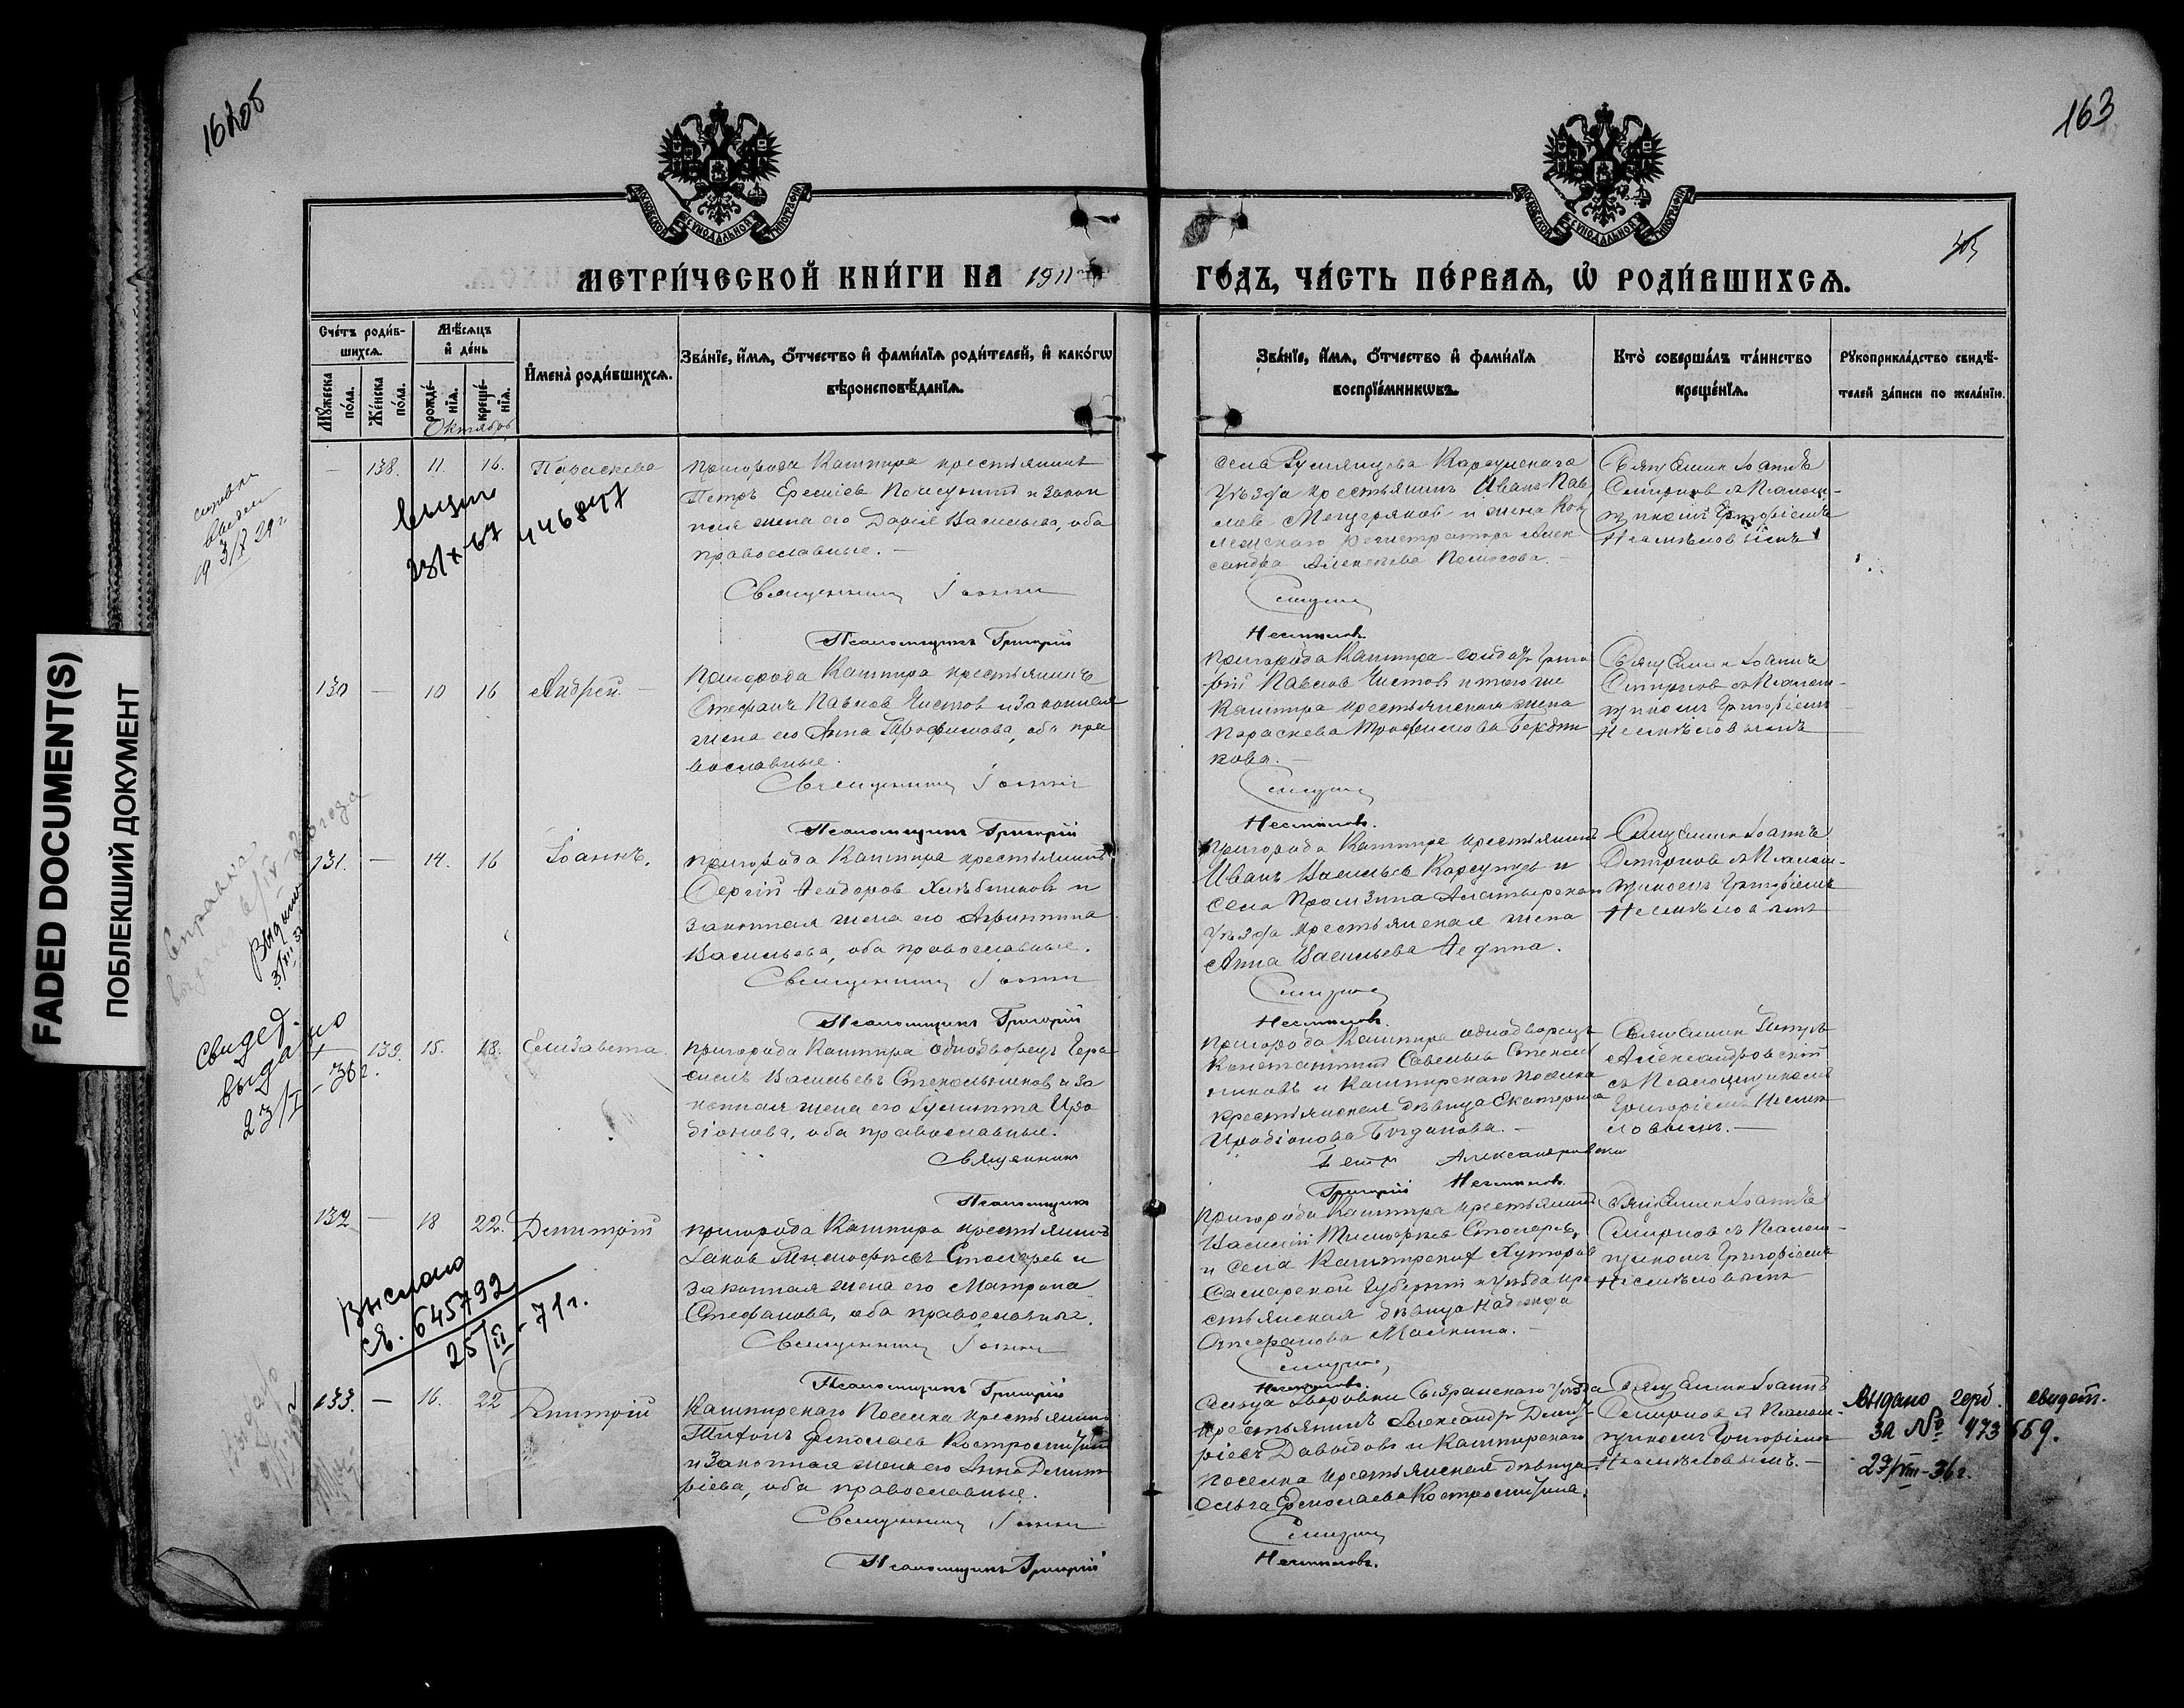 162об
163
МОСКОВСКОЙ СѴНОДАЛЬНОЙ ТИПОГРАФІИ
МОСКОВСКОЙ СѴНОДАЛЬНОЙ ТИПОГРАФІИ
МЕТРИ́ЧЕСКОЙ КНИ́ГИ НА 1911
ГО́ДЪ, ЧА́СТЬ ПЕ́РВАѦ, Ѡ РОДИ́ВШИХСѦ.
Сче́тъ роди́в-
шихсѧ.
Мꙋ́жеска по́ла.
Же́нска по́ла.
Мѣ́сѧцъ и де́нь
рожде́-
нїѧ.
креще́-
нїѧ.
Октябрь
Имена̀ роди́вшихсѧ.
Зва́нїе, и́мѧ, о́тчество и фами́лїѧ роди́телей, и како́гѡ
вѣроисповѣ́данїѧ.
Зва́нїе, и́мѧ, о́тчество и фами́лїѧ
воспрїе́мникѡвъ.
Кто̀ соверша́лъ та́инство
креще́нїѧ.
Рꙋкоприкла́дство свидѣ́-
телей за́писи по жела́нїю.
— 138. 11. 16. Параскева
пригорода Кашпира крестьянинъ
Петръ и закон
ная жена его Дарія Васильева, оба
православные. —
Священникъ Іоаннъ
Псаломщикъ Григорій
села Румянцева Карсунскаго
уѣзда крестьянинъ Иванъ Пав
лов Мещеряков и жена Кол
лежскаго Регистратора Алек
сандра Алексѣева
Смирнов
Несмѣлов.
Священник Іоаннъ
Смирнов съ Псалом-
щиком Григоріемъ
Несмѣловымъ
130 — 10 16 Андрей —
Пригорода Кашпира крестьянинъ
Стефанъ Павлов Чистов и законная
жена его Анна Трофимова, оба пра
вославные.
Священникъ Іоаннъ
Псаломщикъ Григорій
Пригорода Кашпира солдат Григо
рій Павлов Чистовъ и того же
Кашпира крестьянская жена
Параскева Трофимова
кова. —
Смирнов
Несмѣлов.
Священник Іоаннъ
Смирнов съ Псалом-
щиком Григоріемъ
Несмѣловымъ
131. — 14. 16 Іоаннъ.
пригорода Кашпира крестьянинъ
Сергій Ѳеодоров Хлѣбников и
законная жена его Агриппина
Васильева, оба православные.
Священникъ Іоаннъ
Псаломщикъ Григорій
Пригорода Кашпира крестьянинъ
Иванъ Васильев и
села Промзина Алатырскаго
уѣзда крестьянская жена
Анна Васильева
Смирнов
Несмѣлов.
Священник Іоаннъ
Смирнов съ Псалом-
щиком Григоріемъ
Несмѣловымъ
— 139. 15. 18. Елизавета.
пригорода Кашпира однодворецъ Гера
симъ Васильевъ Стекольников и за
конная жена его Иро
діонова, оба православные.
Священникъ
Псаломщикъ
пригорода Кашпира однодворецъ
Константинъ Савельев Стеколь
никовъ и Кашпирскаго Поселка
крестьянская дѣвица Екатерина
Иродіонова Богданова. —
Петр Александровскій
Григорій Несмѣлов.
Священник Петръ
Александровскій
съ Псаломщикомъ
Григоріемъ Несмѣ
ловымъ. —
132 — 18 22. Димитрій
пригорода Кашпира крестьянинъ
Іаков Тимоѳеевъ Столяров и
законная жена его Матрона
Стефанова, оба православные.
Священникъ Іоаннъ
Псаломщикъ Григорій
пригорода Кашпира крестьянинъ
Василій Тимоѳеев Столяров,
и села Кашпирских Хуторов
Самарской Губерніи и уѣзда кре
стьянская дѣвица Надежда
Стефанова
Смирнов
Несмѣлов.
Священник Іоаннъ
Смирнов съ Псалом-
щиком Григоріемъ
Несмѣловымъ
133. — 16. 22 Димитрій
Кашпирскаго Поселка крестьянинъ
Тихонъ Ермолаев Костромитинъ
и законная жена его Анна Димит
ріева, оба православные.
Священникъ Іоаннъ
Псаломщикъ Григорій
сельца Дворовки Сызранскаго уѣзда
крестьянинъ Александръ Димит-
ріевъ Давыдовъ и Кашпирскаго
поселка крестьянская дѣвица
Ольга Ермолаева Костромитина.
Смирнов
Несмѣлов.
Священник Іоаннъ
Смирнов съ Псалом-
щиком Григоріемъ
Несмѣловымъ. —
выдано герб. свидет.
за № 473669.
29/VIII-36г.
справка
выдана
19 3/X 29 г
23/X 67 446847
Справка
выдана
Выдано
3/VII 37
Свидет.
выдано
23/I-36г.
Выслано
св. 645792
25/II-71г.
FADED DOCUMENT(S)
ПОБЛЕКШИЙ ДОКУМЕНТ